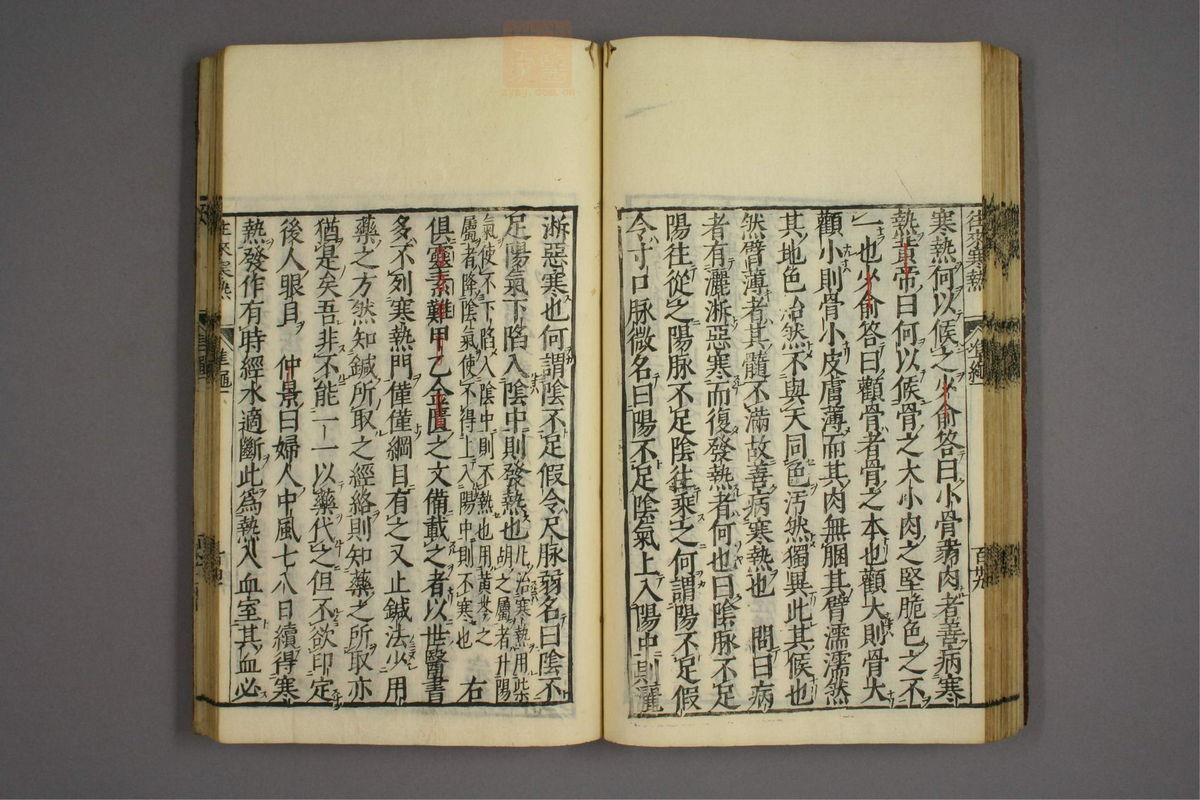 往來寒熱
準繩
百九
寒熱何以候之少俞答曰小骨弱肉者善病寒
熱黃帝曰何以候骨之大小肉之堅脆色之不
一也少俞答曰顴骨者骨之本也顴大則骨大
顴小則骨小皮膚薄而其肉無䐃其臂濡濡然
其地色冶然不與天同色汚然獨異此其候也
然臂薄者其髓不滿故善病寒熱也　問曰病
者有灑淅惡寒而復發熱者何也曰陰脉不足
陽往從之陽脉不足陰往乘之何謂陽不足假
令寸口脉微名曰陽不足陰氣上入陽中則灑
淅惡寒也何謂陰不足假令尺脉弱名曰陰不
足陽氣下陷入陰中則發熱也凡治寒熱用柴胡之屬者升陽
氣使不下陷入陰中則不熱也用黃芩之屬者降陰氣使不得上入陽中則不寒也　右
俱靈素難甲乙金匱之文備載之者以世醫書
多不列寒熱門僅僅綱目有之又止鍼法少用
藥之方然知鍼所取之經絡則知藥之所取亦
猶是矣吾非不能一一以藥代之但不欲印定
後人眼目　仲景曰婦人中風七八日續得寒
熱發作有時經水適斷此爲熱入血室其血必
往來寒熱
準繩